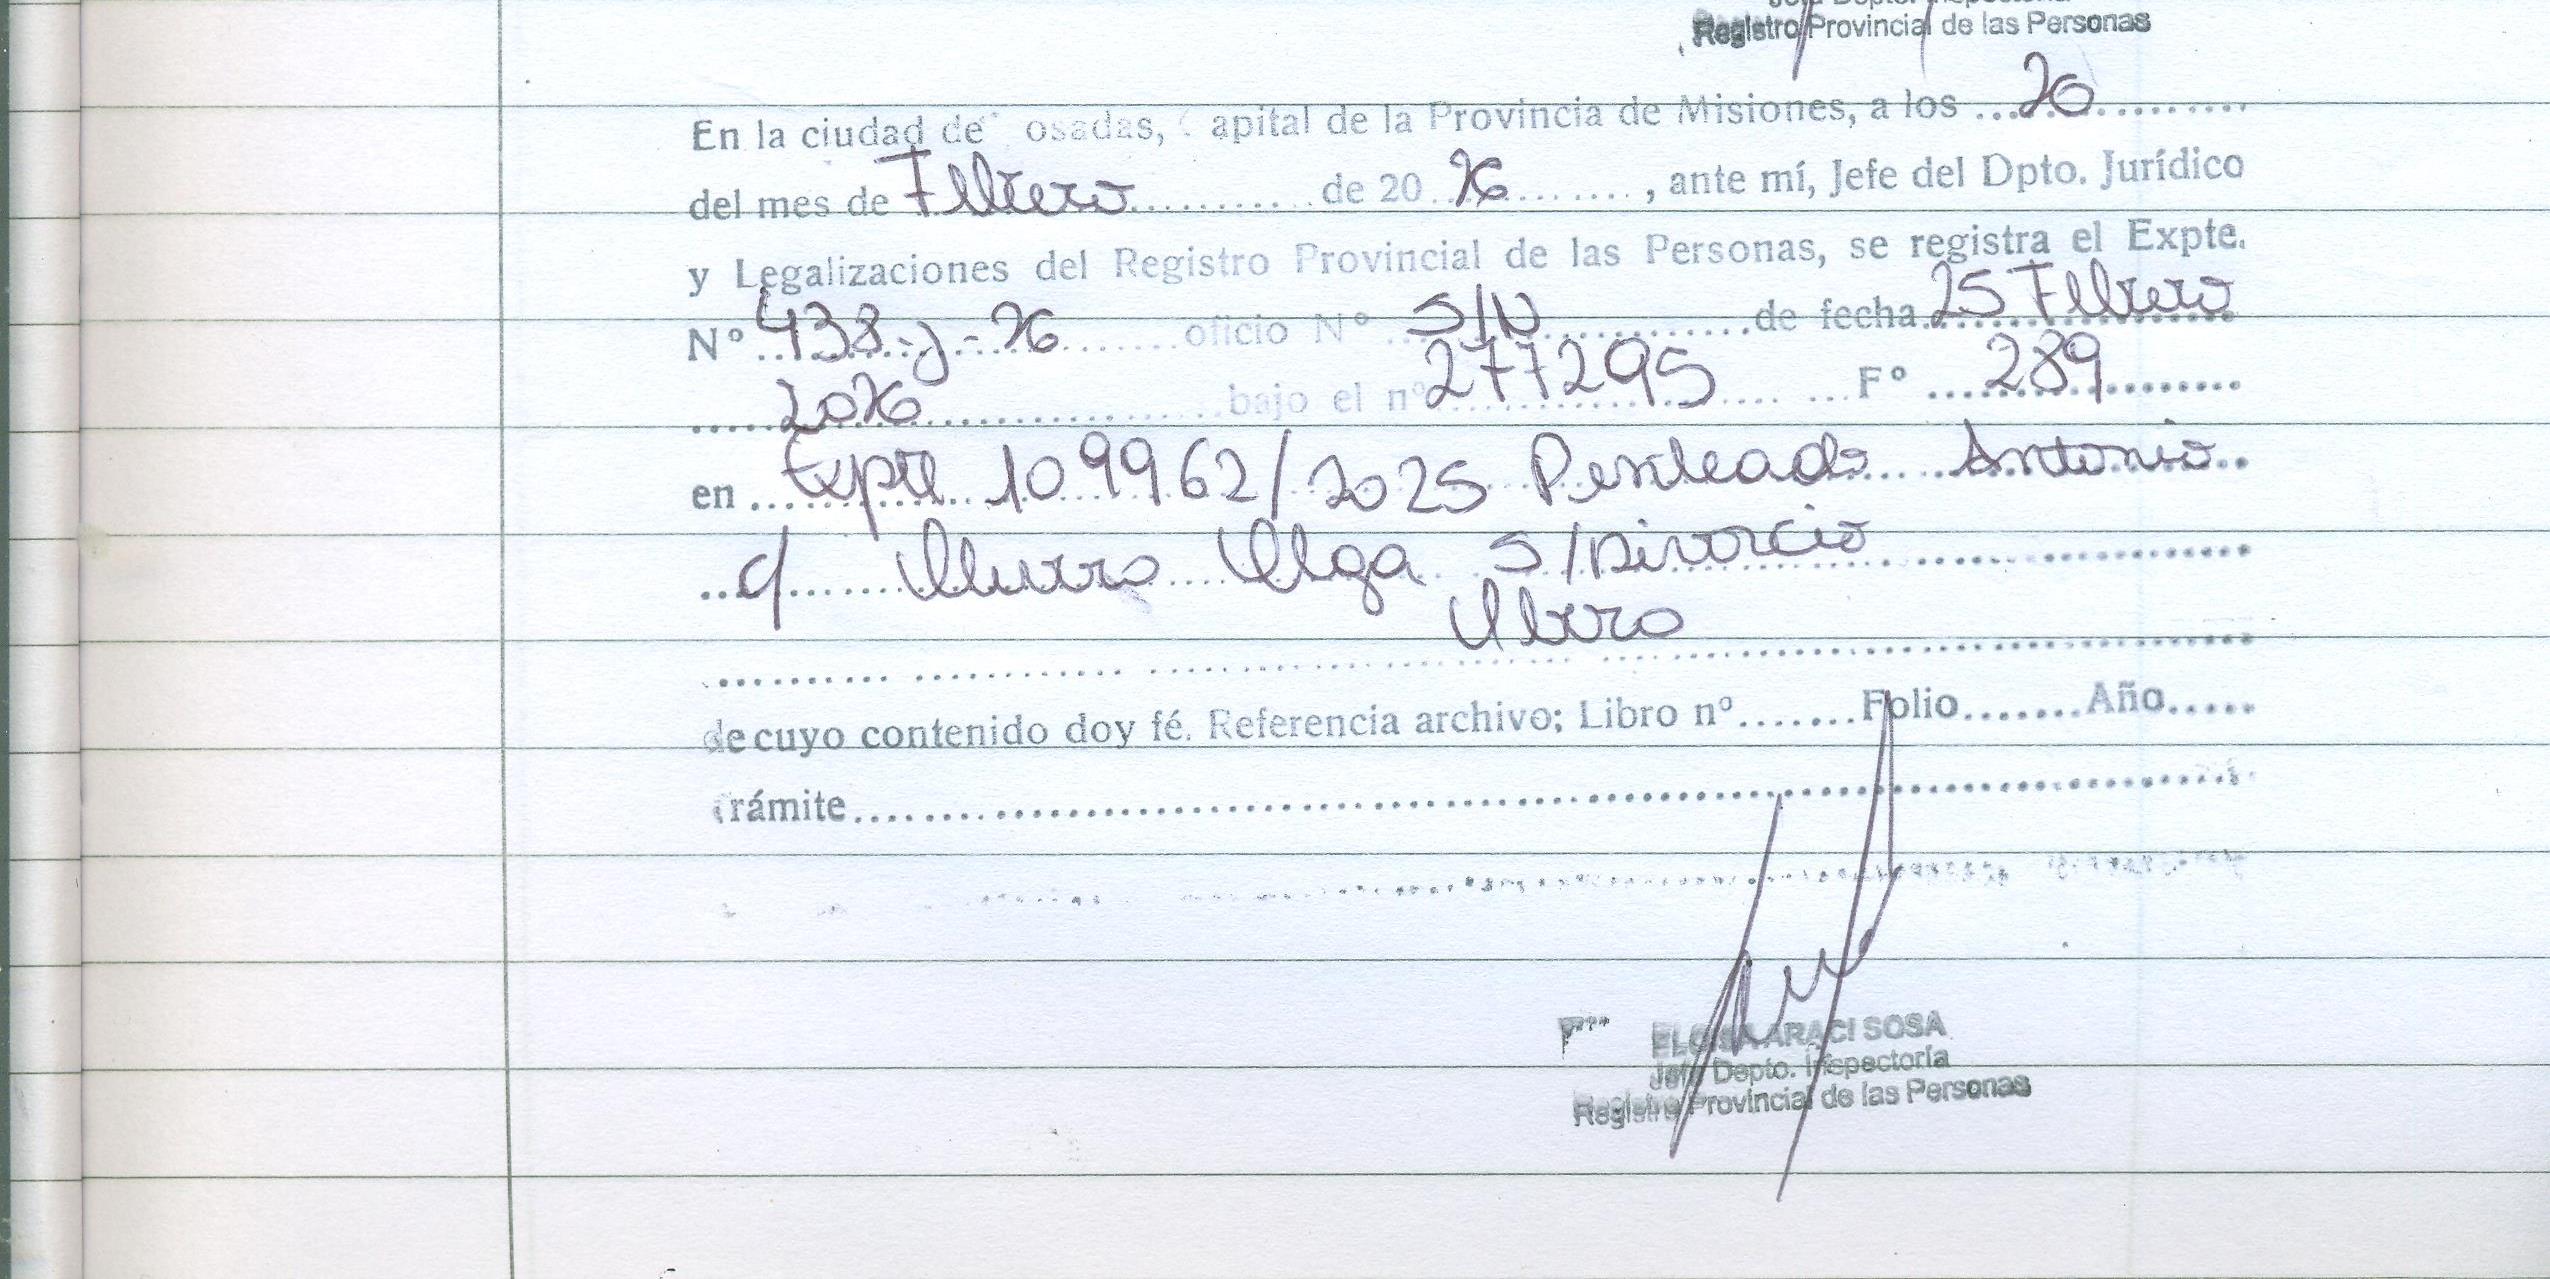 Jefe Depto. Inspectoría
Registro Provincial de las Personas
En la ciudad de osadas, apital de la Provincia de Misiones, a los ...26..........
del mes de Febrero............ de 20 26........, ante mí, Jefe del Dpto. Jurídico
y Legalizaciones del Registro Provincial de las Personas, se registra el Expte.
Nº 438-J-26 ....... oficio Nº ... S/N ............ de fecha 25 Febrero
..... 2026 ................. bajo el nº 277295 .... ... Fº ... 289 ........
en ... Expte 109962/2025 Penteado Antonio
... c/ Olga S/Divorcio
de cuyo contenido doy fé. Referencia archivo; Libro nº.......Folio.......Año.....
rámite........................................................
ELOISA ARACI SOSA
Jefe Depto. Inspectoría
Registro Provincial de las Personas